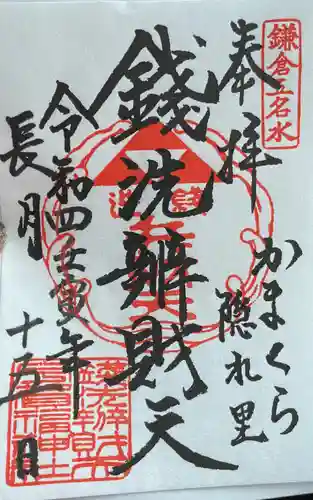 鎌倉五名水
奉拝
かまくら
隠れ里
銭洗
銭洗辨財天
令和四壬寅年
長月
十五日